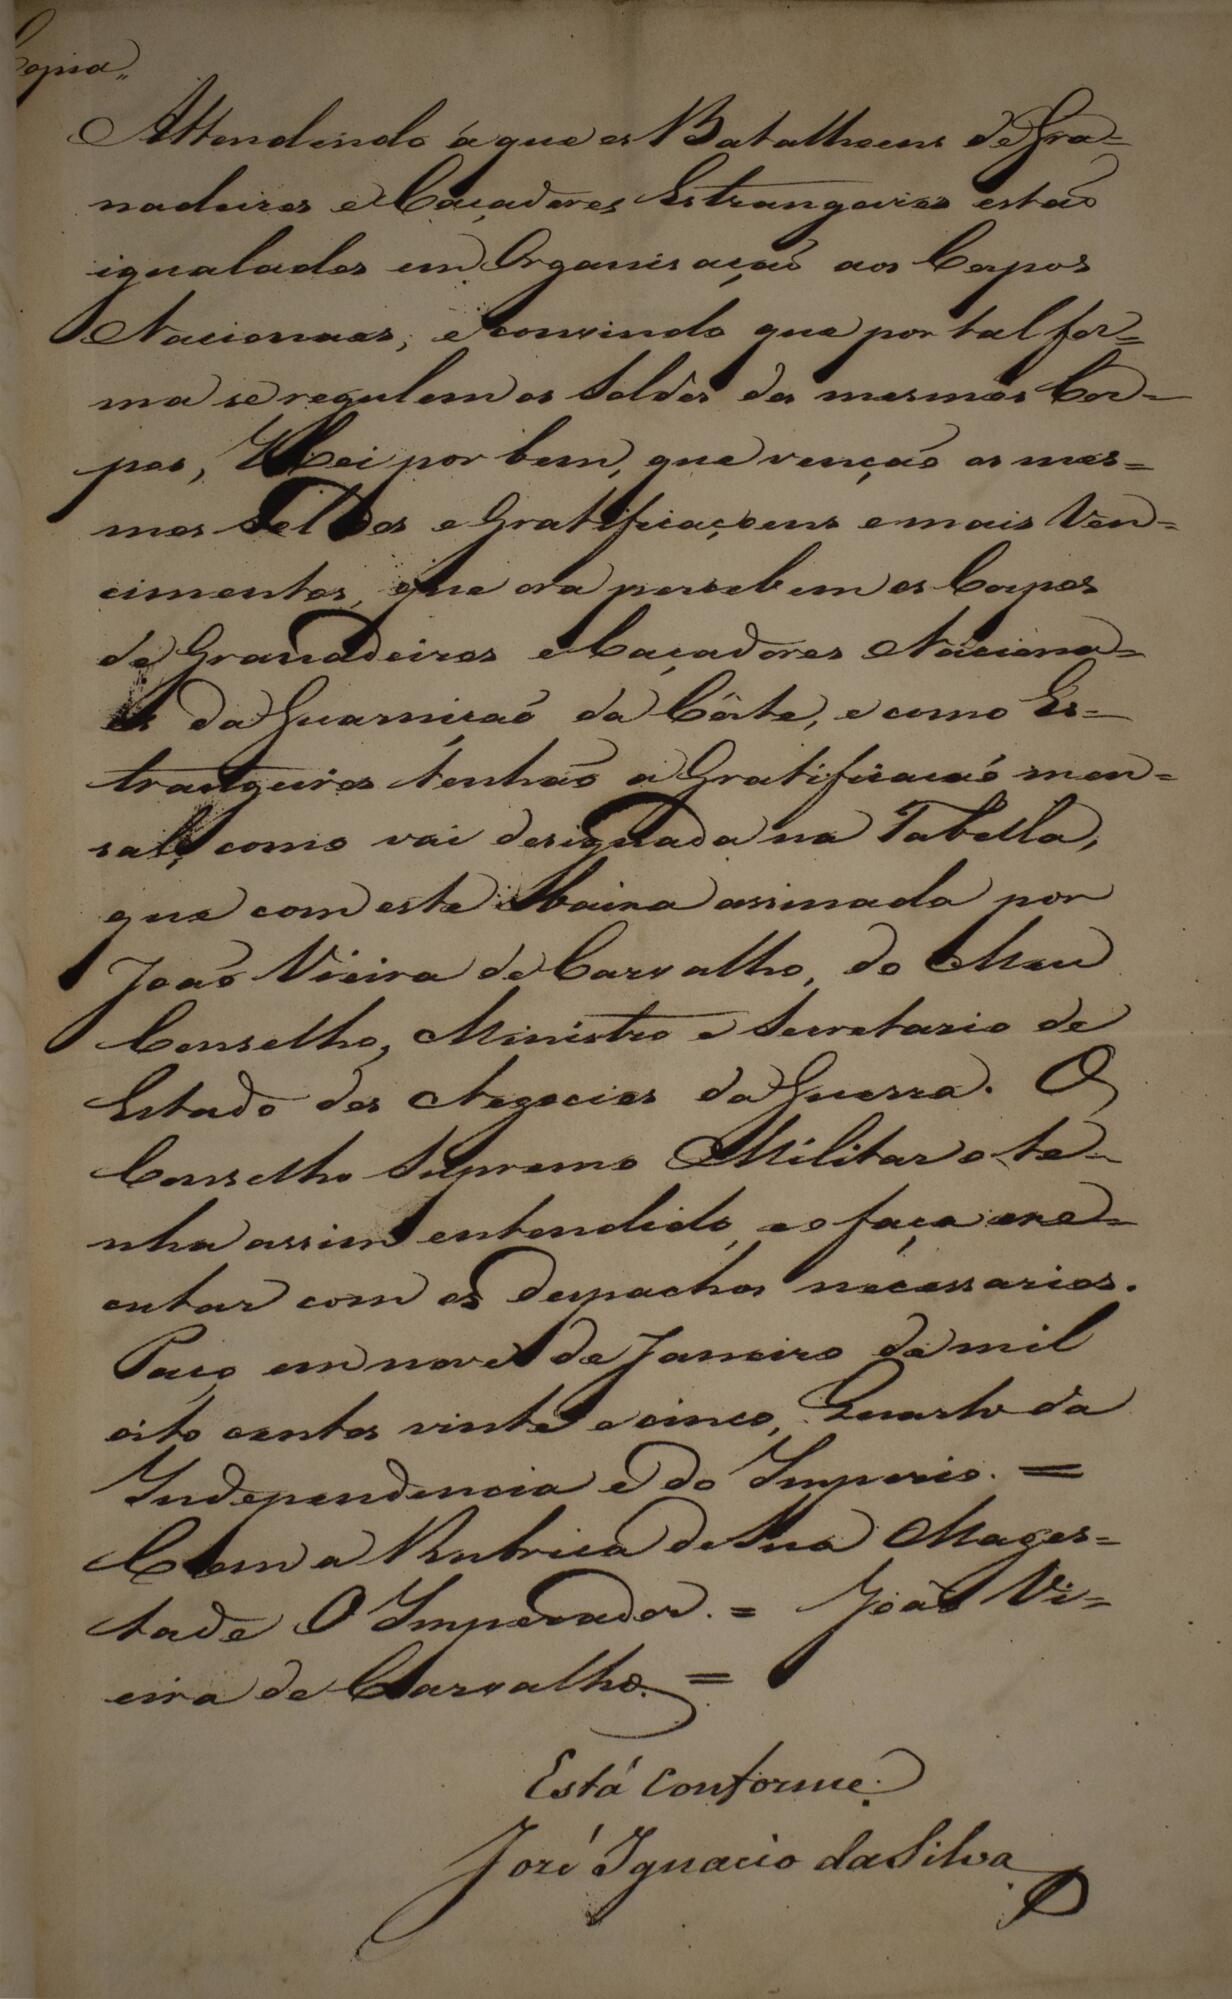 Copia„
Attendendo á que os Batalhoens de Gra-
nadeiros e Caçadores Estrangeiros estaõ
igualados em Organisaçaõ aos Corpos
Nacionaes, e convindo que por tal for=
ma se regulem os Soldos dos mesmos Cor=
pos, Hei por bem, que vençaõ os mes=
mos Soldos e Gratificaçoens e mais Ven=
cimentos, que ora percebem os Corpos
de Granadeiros e Caçadores Naciona=
es da Guarniçaõ da Côrte, e como Es=
trangeiros tenhaõ a Gratificaçaõ men=
sal, como vai designada na Tabella,
que com este baixa assinada por
Joaõ Vieira de Carvalho, do Meu
Conselho, Ministro e Secretario de
Estado dos Negocios da Guerra. O
Conselho Supremo Militar o te=
nha assim entendido, e o faça exe=
cutar com os despachos necessarios.
Paço em nove de Janeiro de mil
oito centos vinte e cinco, Quarto da
Independencia e do Imperio. =
Com a Rubrica de Sua Mages=
tade O Imperador. = Joaõ Vi=
eira de Carvalho. =
Está conforme.
José Ignacio da Silva